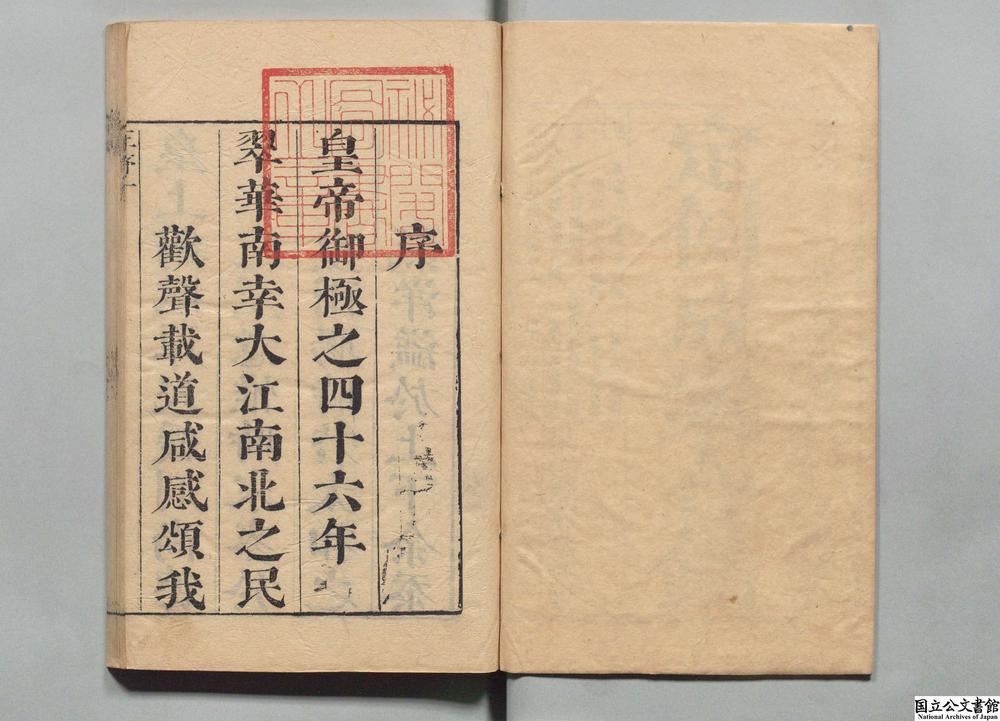 序
皇帝御極之四十六年
翠華南幸大江南北之民
歡聲載道咸感頌我
国立公文書館
National Archives of Japan